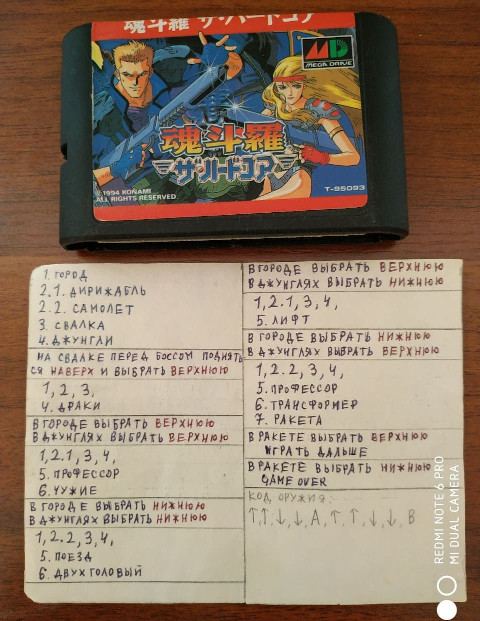 魂斗羅 ザ・ハードコア
MD
MEGA DRIVE
魂斗羅
ザ・ハードコア
©1994 KONAMI
ALL RIGHTS RESERVED
T-95093
1. ГОРОД
2.1. ДИРИЖАБЛЬ
2.2. САМОЛЕТ
3. СВАЛКА
4. ДЖУНГЛИ
НА СВАЛКЕ ПЕРЕД БОССОМ ПОДНЯТЬ
СЯ НАВЕРХ И ВЫБРАТЬ ВЕРХНЮЮ
1, 2, 3,
4. ДРАКИ
В ГОРОДЕ ВЫБРАТЬ ВЕРХНЮЮ
В ДЖУНГЛЯХ ВЫБРАТЬ ВЕРХНЮЮ
1, 2.1, 3, 4,
5. ПРОФЕССОР
6. ЧУЖИЕ
В ГОРОДЕ ВЫБРАТЬ НИЖНЮЮ
В ДЖУНГЛЯХ ВЫБРАТЬ НИЖНЮЮ
1, 2.2, 3, 4,
5. ПОЕЗД
6. ДВУХГОЛОВЫЙ
В ГОРОДЕ ВЫБРАТЬ ВЕРХНЮЮ
В ДЖУНГЛЯХ ВЫБРАТЬ НИЖНЮЮ
1, 2.1, 3, 4,
5. ЛИФТ
В ГОРОДЕ ВЫБРАТЬ НИЖНЮЮ
В ДЖУНГЛЯХ ВЫБРАТЬ ВЕРХНЮЮ
1, 2.2, 3, 4,
5. ПРОФЕССОР
6. ТРАНСФОРМЕР
7. РАКЕТА
В РАКЕТЕ ВЫБРАТЬ ВЕРХНЮЮ
ИГРАТЬ ДАЛЬШЕ
В РАКЕТЕ ВЫБРАТЬ НИЖНЮЮ
GAME OVER
КОД ОРУЖИЯ:
↑, ↑, ↓, ↓, A, ↑, ↑, ↓, ↓, B
REDMI NOTE 6 PRO
MI DUAL CAMERA